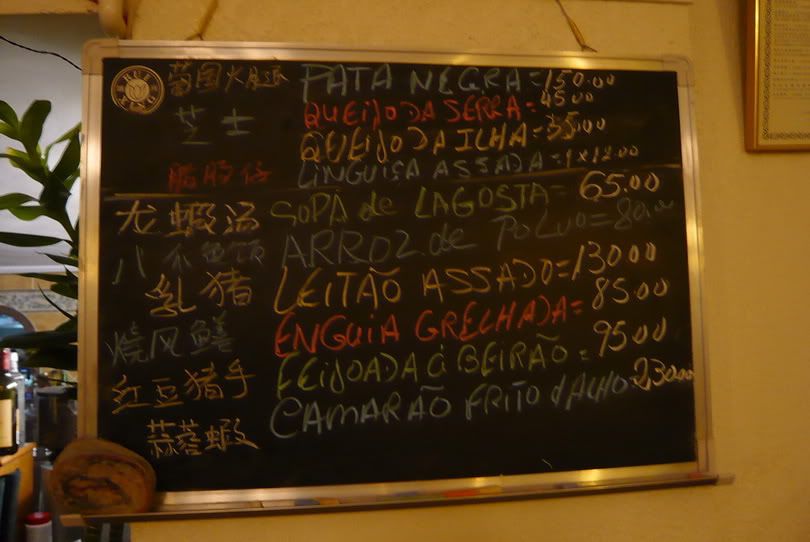 葡国火腿 PATA NEGRA=150.00
芝士 QUEIJO DA SERRA=45.00
QUEIJO DA ILHA=35.00
腸仔 LINGUIÇA ASSADA=1x12.00
龙蝦汤 SOPA de LAGOSTA=65.00
八爪鱼饭 ARROZ de POLVO=80.00
乳猪 LEITÃO ASSADO=130.00
烧风鱔 ENGUIA GRELHADA=85.00
红豆猪手 FEIJOADA á BEIRÃO=95.00
蒜蓉蝦 CAMARÃO FRITO d'ALHO=230.00